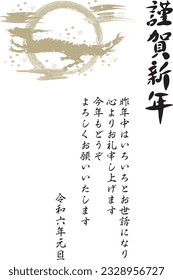 謹賀新年
昨年中はいろいろとお世話になり
心よりお礼申し上げます
今年もどうぞ
よろしくお願いいたします
令和六年元旦
shutterstock.com · 2328956727